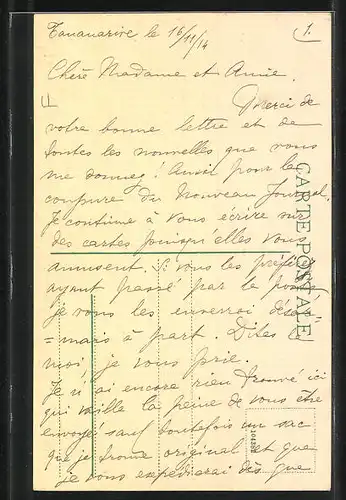 Tananarive le 16/11/14
1.
Chère Madame et Amie.
Merci de
votre bonne lettre et de
toutes les nouvelles que vous
me donnez! Aussi pour la
coupure du Nouveau Journal.
Je continue à vous écrire sur
des cartes puisqu'elles vous
amusent. Si vous les préférez
ayant passé par la poste
je vous les enverrai déso-
=mais à part. Dites le
moi, je vous prie.
Je n'ai encore rien trouvé ici
qui vaille la peine de vous être
envoyé sauf toutefois un sac
que je trouve original et que
je vous expédierai dès que
CARTE POSTALE